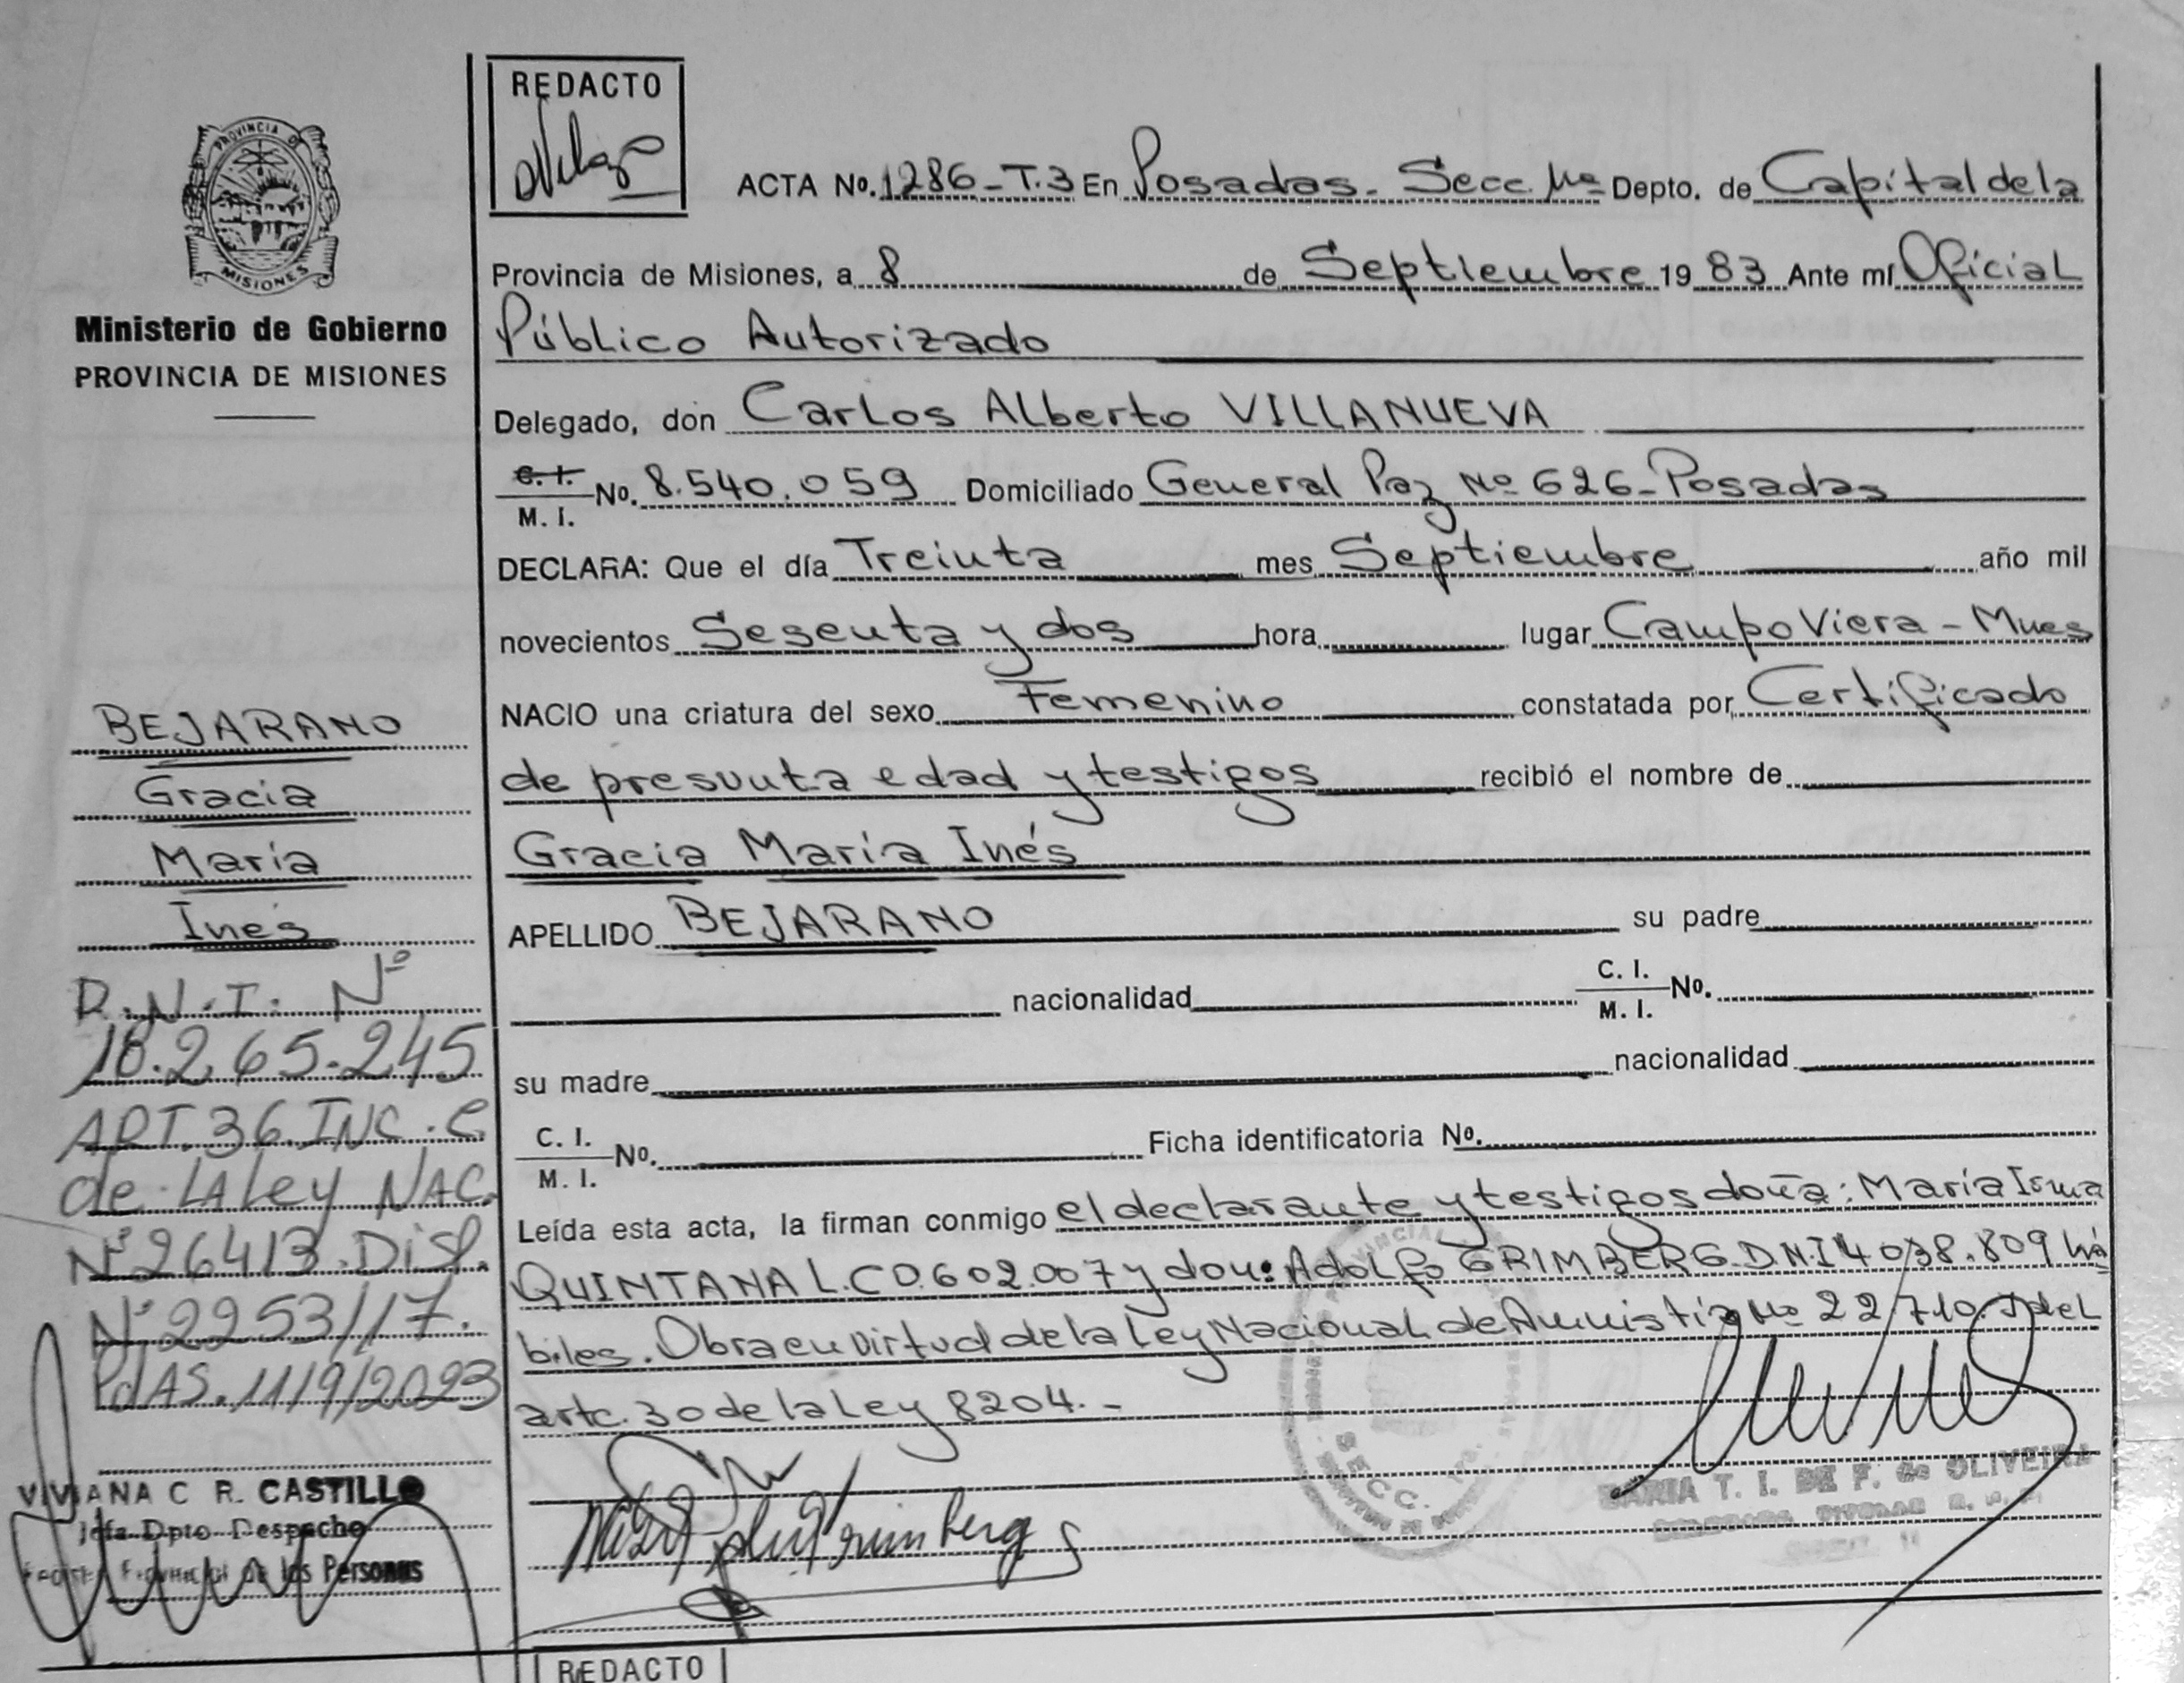 REDACTO
PROVINCIA DE
MISIONES
Ministerio de Gobierno
PROVINCIA DE MISIONES
BEJARANO
Gracia
María
Inés
D.N.I. Nº
18.265.245
ART.36.INC.C
de LA Ley NAC.
Nº26413.Disp.
Nº2253/17.
PdAS.11/9/2023
VIVIANA C R. CASTILLO
Jefa Dpto Despacho
Provincial de las Personas
ACTA No. 1286-T.3 En Posadas. Secc. Depto. de Capital de la
Provincia de Misiones, a 8 de Septiembre 1983 Ante mí Oficial
Público Autorizado
Delegado, don Carlos Alberto VILLANUEVA
C. I.
M. I. No. 8.540.059 Domiciliado General Paz Nº 626-Posadas
DECLARA: Que el día Treinta mes Septiembre año mil
novecientos Sesenta y dos hora lugar Campo Viera - Mnes
NACIO una criatura del sexo Femenino constatada por Certificado
de presunta edad y testigos recibió el nombre de
Gracia María Inés
APELLIDO BEJARANO su padre
nacionalidad C. I. M. I. No.
su madre nacionalidad
C. I. M. I. No. Ficha identificatoria No.
Leída esta acta, la firman conmigo el declarante y testigos doña: María Irma
QUINTANA L.C 0.602.007 y don: Adolfo GRIMBERG D.N.I 4038.809 há
biles. Obra en virtud de la Ley Nacional de Amnistía Nº 22.710. Y del
artc. 30 de la Ley 8204.-
SECC. 1ra.
MARIA T. I. DE F. de OLIVEIRA
REDACTO